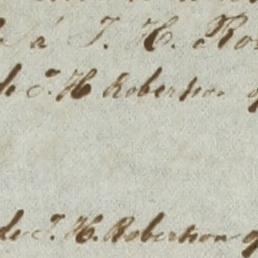 á J. H. Ro
de J. H Robertson
de J. H. Robertson